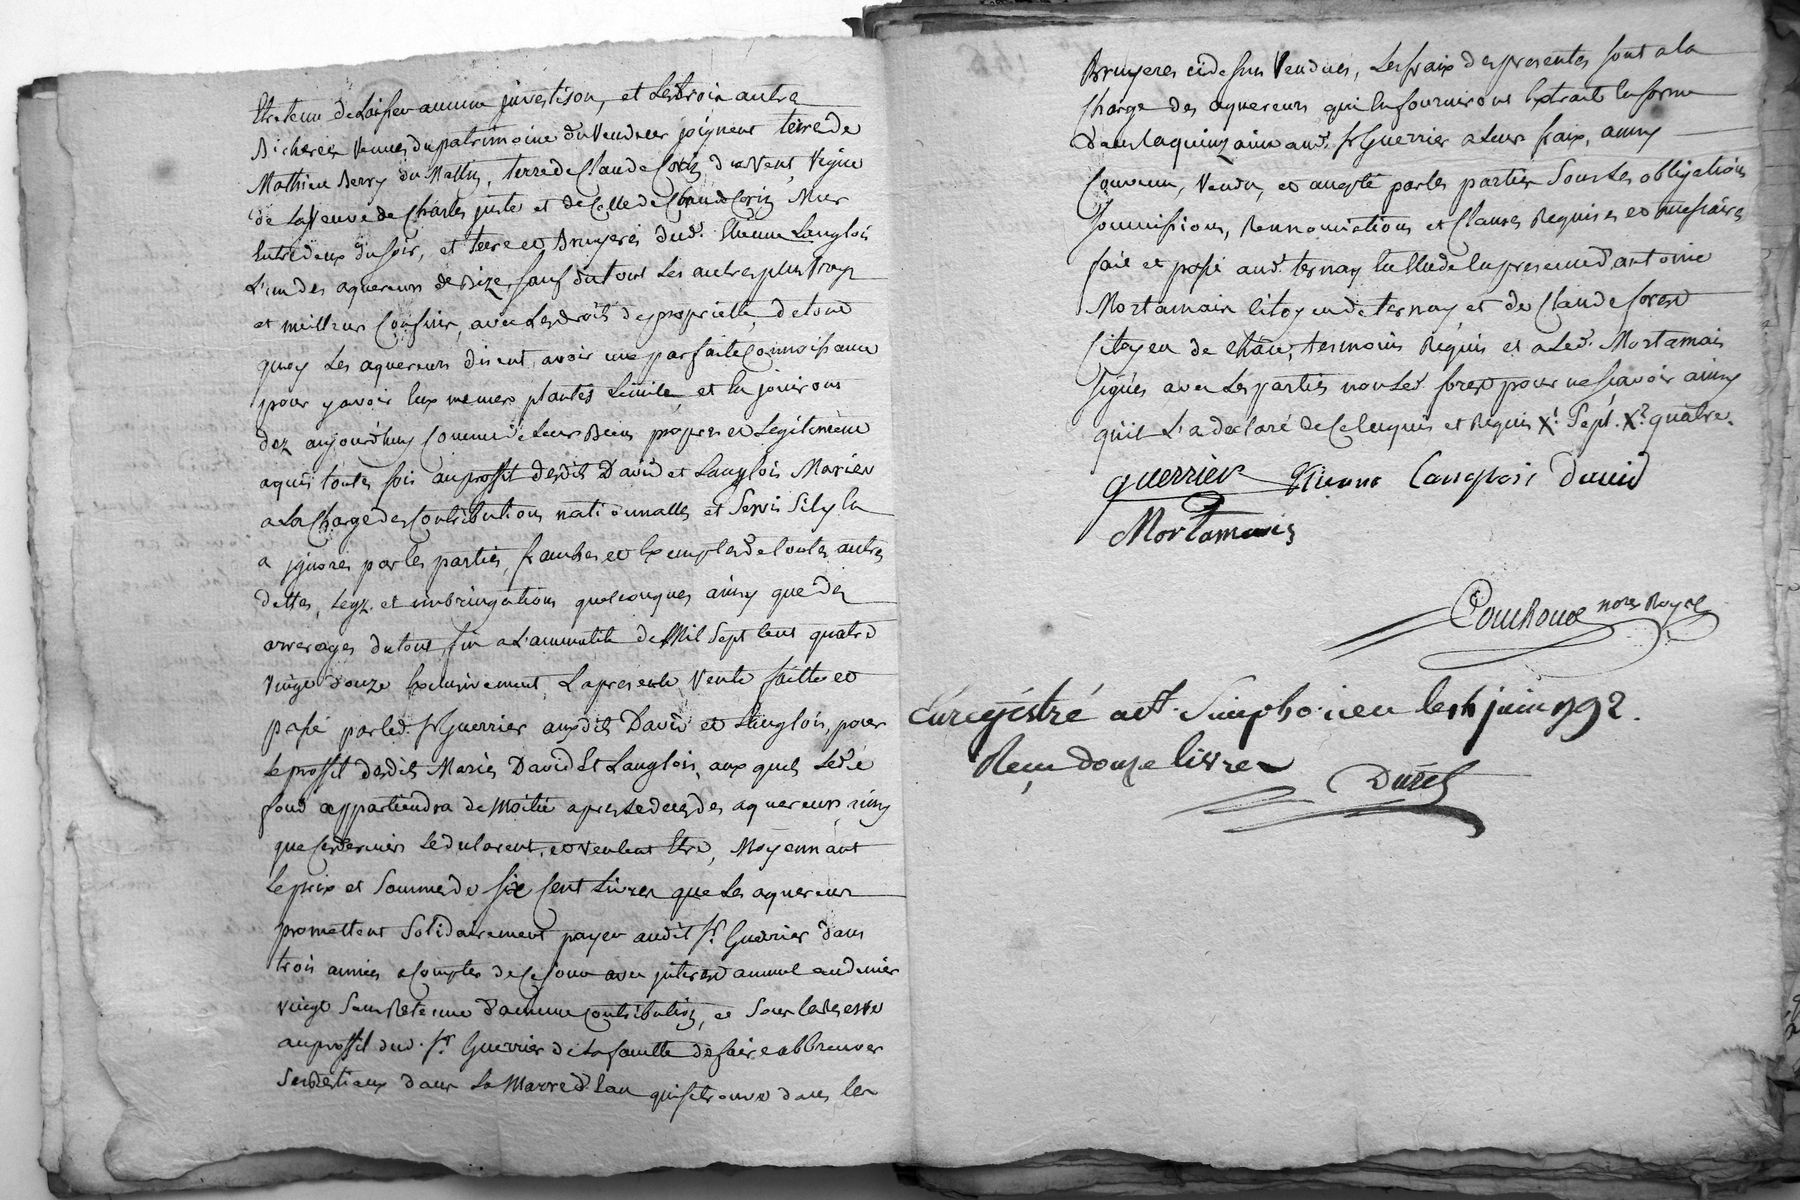 Etre tenu de Laisser aucune investison, et Les trois autres
Bicherées venues du patrimoine du Vendeur joignent terre de
Mathieu Berry du Mattin, terre de Claude du vent, Vigne
de La Veuve de Charles juste et de Celle de Claude Mur
Entredeux du soir, et terre et Bruyeres dud. Etienne Langlois
L'un des aquereurs de Bize, sauf du tout Les autres plus vrays
et meilleurs Confins, avec Les droits de proprieté, de tout
quoy Les aquereurs disent avoir une parfaite Connoissance
pour y avoir Eux memes plantés Limite, et En jouiront
dez aujourd'huy Comme de Leurs Biens propres et Legitimement
aquis toutes fois au proffit desdits David et Langlois Mariés
a La Charge des Contributions nationnalles et Servis Sil y En
a ignorés par les parties, franches et Exemptes de toutes autres
dettes, Legz. et imbringations quelconques ainsy que des
arrerages du tout, fin a L'annuitté de Mil Sept Cent quatre
Vingt douze Exclusivement, La presente Vente faitte et
passé par led. Sr Guerrier auxdits David et Langlois, pour
Le proffit desdits Mariés David Et Langlois, aux quels Ledit
fond appartiendra de Moitié apres Le deces des aquereurs ainsy
que Ces derniers Le declarent et veulent Etre, Moyennant
Le prix et Somme de Six Cent Livres que Les aquereurs
promettent Solidairement payer audit Sr. Guerrier dans
trois années a Compter de Ce jour avec interest annuel au denier
vingt Sans Retenue d'aucune Contribution, et Sous la Reserve
au proffit dud. Sr. Guerrier de La faculté de faire abbreuver
Ses Bestiaux dans La Marre d'Eau qui se trouve dans les
Bruyeres cidessus Vendues, Les fraix des presentes sont a la
Charge des aquereurs qui En fourniront Extrait En forme
dans la quinzaine aud. Sr Guerrier a Leurs fraix, ainsy
Convenu, Vendu, et accepté par les parties Sous Les obligations
Soumissions, Rennonciations et Clauses Requises et necessaires
fait et passé aud. ternay En de En presence d'antoine
Mortamais Citoyen de ternay et de Claude forest
Citoyen de temoins Requis et a Led. Mortamais
signés avec Les parties non Led. forest pour ne sçavoir ainsy
quil L'a declaré de Ce Enquis et Requis X. Sept. X. quatre.
guerrier Etienne Langlois David
Mortamais
nore Royal
Enregistré a St. Simphorien le juin 1792.
Reçu douze livres